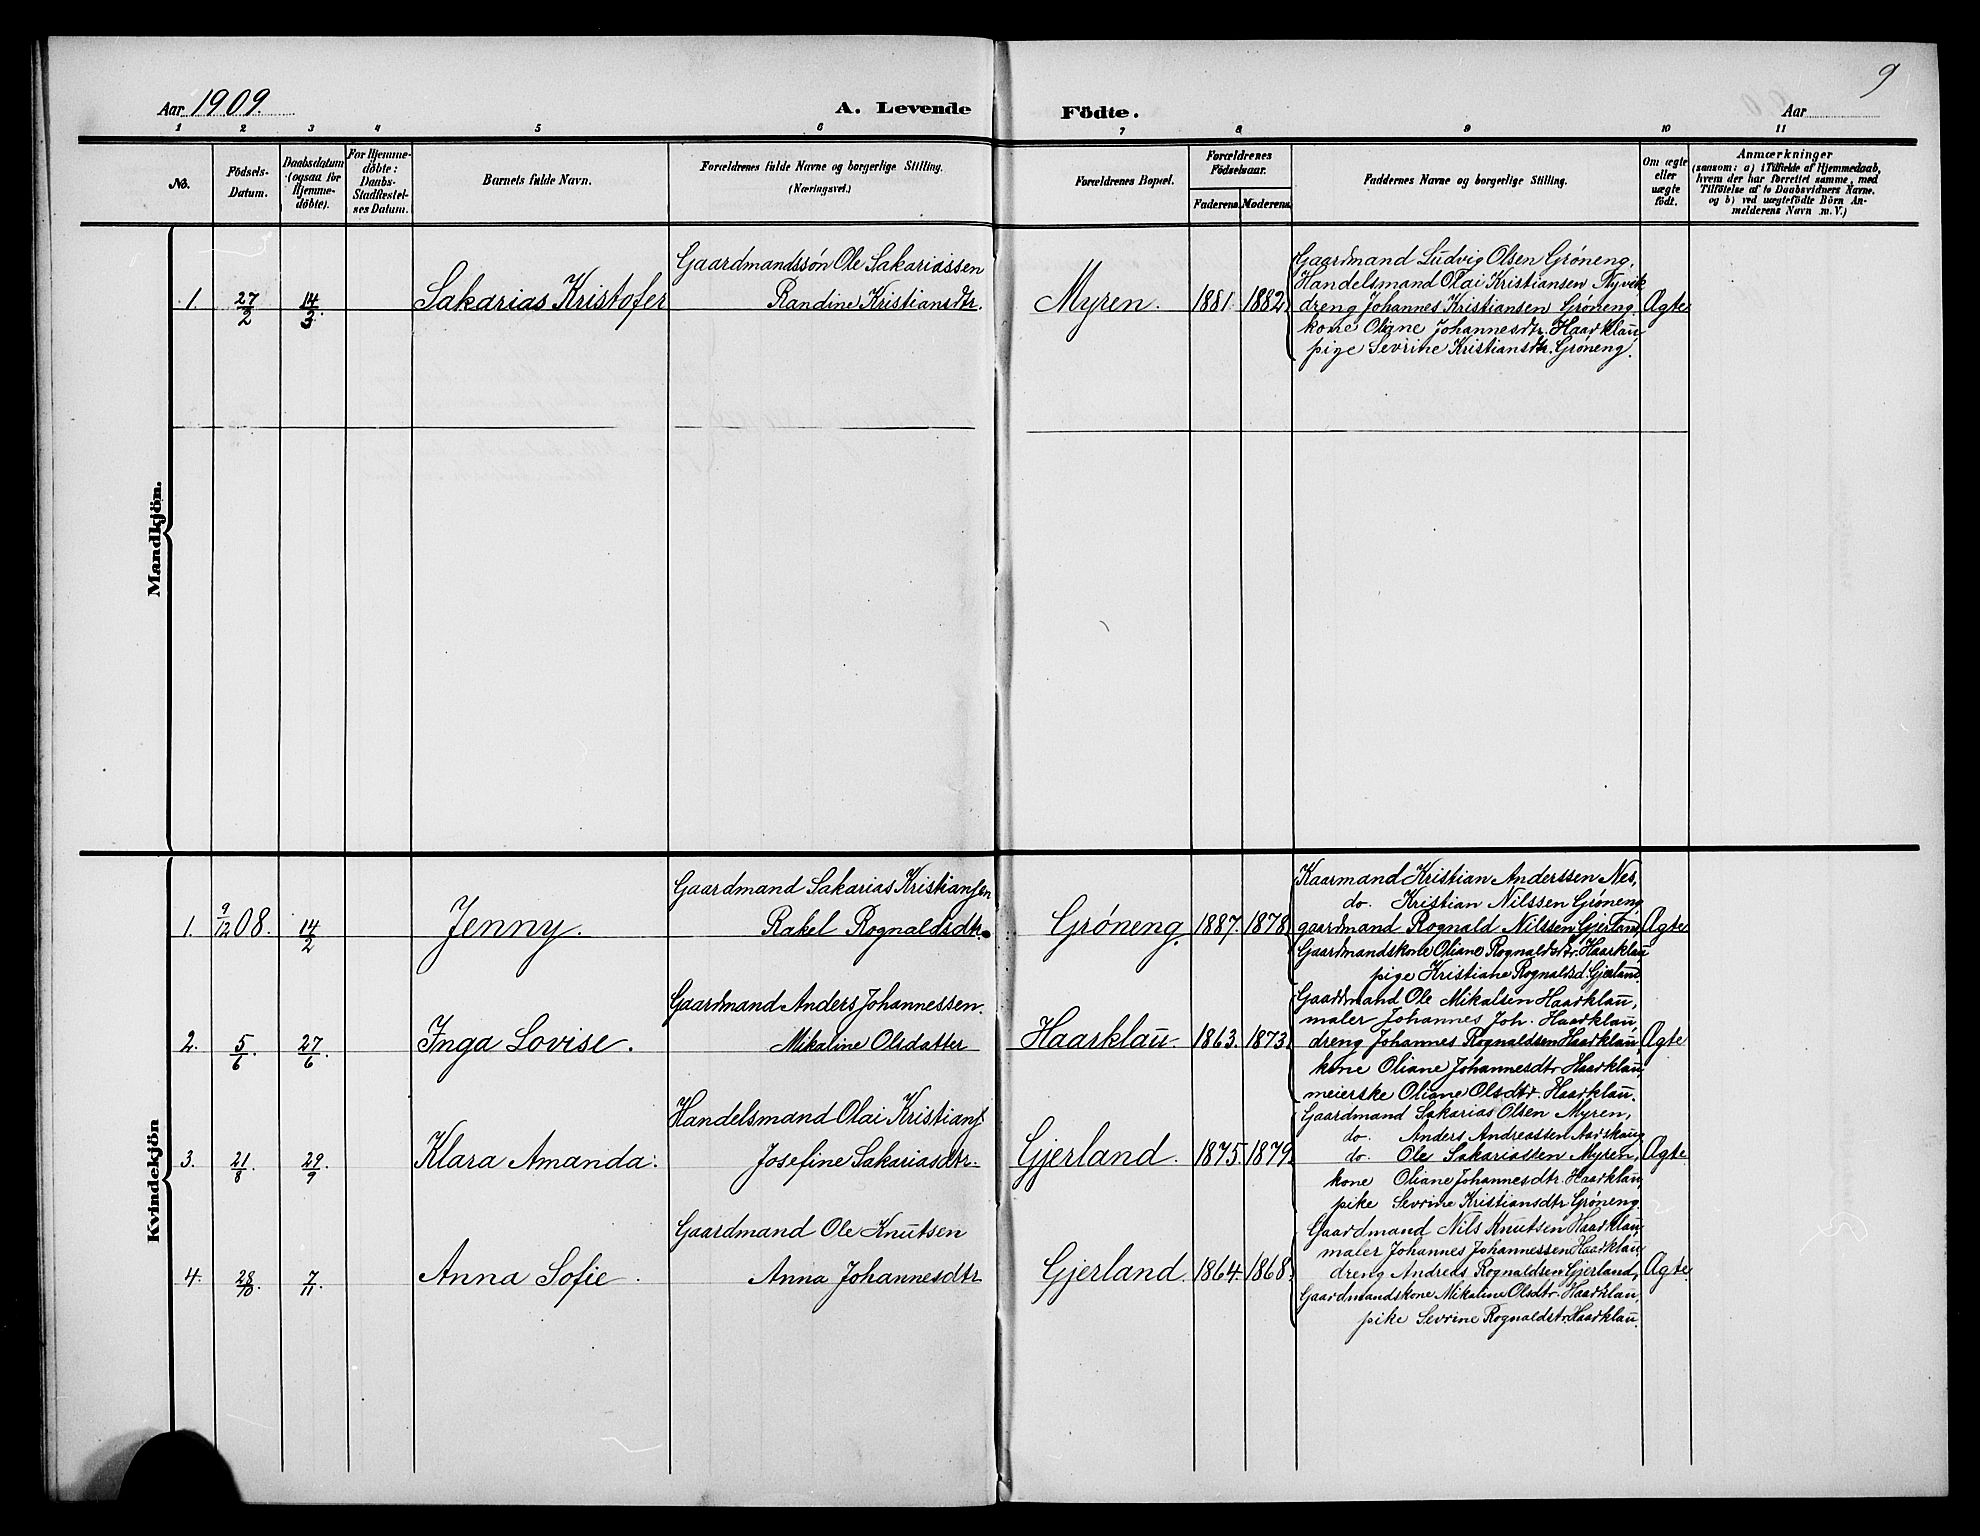 Aar 1909. A. Levende Födte. Aar 9
1 2 3 4 5 6 7 8 9 10 11
No.
Födsels-Datum.
Daabsdatum (ogsaa for Hjemme-döbte).
For Hjemme-döbte: Daabs-Stadfæstel-ses Datum.
Barnets fulde Navn.
Forældrenes fulde Navne og borgerlige Stilling.
(Næringsvei.)
Forældrenes Bopæl.
Forældrenes Födselsaar.
Faderens. Moderens.
Faddernes Navne og borgerlige Stilling.
Om ægte eller uægte födt.
Anmærkninger
(saasom: a) i Tilfælde af Hjemmedaab,
hvem der har forrettet samme, med
Tilföielse af to Daabsvidners Navne.
og b) ved uægtefödte Börn An-
melderens Navn m. V.)
Mandkjön.
1. 27/2 14/3 Sakarias Kristofer
Gaardmandssøn Ole Sakariassen
Randine Kristiansdtr.
Myren. 1881. 1882.
Gaardmand Ludvig Olsen Grøneng.
Handelsmand Olai Kristiansen Nyvik
dreng Johannes Kristiansen Grøneng.
kone Oliane Johannesdtr. Haarklau,
pige Sevrine Kristiansdtr. Grøneng.
Ægte
Kvindekjön
1. 9/12 08. 14/2 Jenny.
Gaardmand Sakarias Kristiansen
Rakel Rognaldsdtr.
Grøneng. 1887. 1878
Kaarmand Kristian Anderssen Nes,
do. Kristian Nilssen Grøneng,
gaardmand Rognald Nilssen Gjerland,
Gaardmandskone Oliane Rognaldsdtr. Haarklau
pige Kristiane Rognaldsd. Gjerland.
Ægte
2. 5/6. 27/6. Inga Lovise.
Gaardmand Anders Johannessen.
Mikaline Olsdatter
Haarklau. 1863. 1873.
Gaardmand Ole Mikalsen Haarklau,
maler Johannes Joh. Haarklau,
dreng Johannes Rognaldsen Haarklau,
kone Oliane Johannesdtr Haarklau,
meierske Oliane Olsdtr. Haarklau.
Ægte
3. 21/8. 29/9. Klara Amanda.
Handelsmand Olai Kristians.
Josefine Sakariasdtr.
Gjerland. 1875. 1879.
Gaardmand Sakarias Olsen Myren,
do. Anders Andreassen
do. Ole Sakariassen Myren,
kone Oliane Johannesdtr. Haarklau,
pike Sevrine Kristiansdtr Grøneng.
Ægte
4. 28/10. 7/11. Anna Sofie.
Gaardmand Ole Knutsen
Anna Johannesdtr
Gjerland. 1864. 1868.
Gaardmand Nils Knutsen Haarklau,
maler Johannes Johannessen Haarklau
dreng Andreas Rognaldsen Gjerland,
Gaardmandskone Mikaline Olsdtr. Haarklau,
pike Sevrine Rognaldsdtr. Haarklau.
Ægte